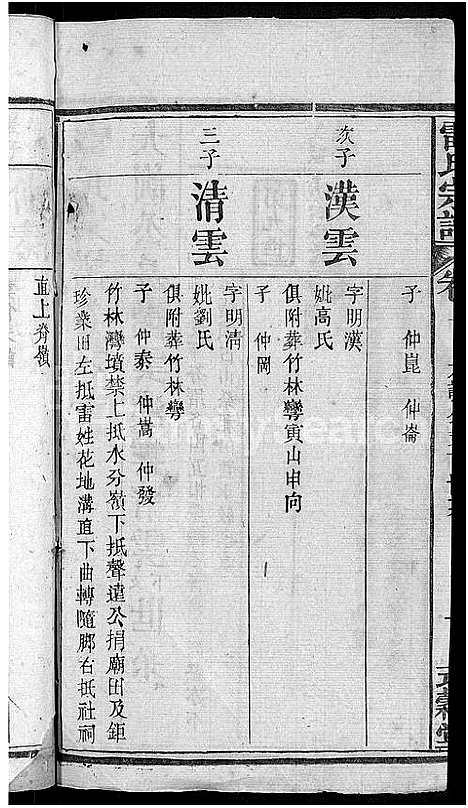 雷氏宗譜
子 仲崑 仲崙
次子
漢雲
字明漢
妣高氏
俱附葬竹林彎寅山申向
子 仲岡
三子
清雲
字明清
妣劉氏
俱附葬竹林彎
子 仲泰 仲嵩 仲發
竹林灣墳禁上抵水分嶺下抵聲達公捐廟田及鉅
珍桑田左抵雷姓花地溝直下曲轉隨脚右抵社祠
直上脊嶺